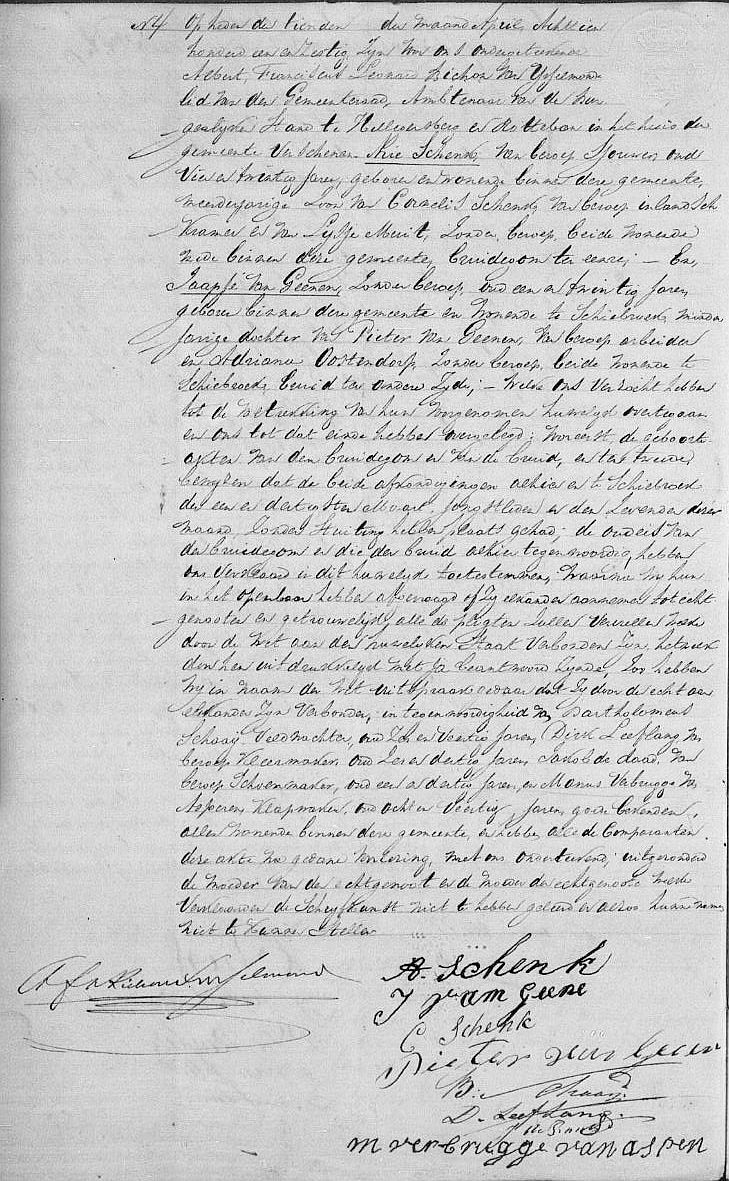 N4 Op heden den tienden der maand April Achttien
honderd een en zestig zyn voor ons ondergeteekende
Albert Franciscus Leonard Bichon van Ysselmonde
lid van den Gemeenteraad, Ambtenaar van de bur
gerlyke Stand te Hillegersberg en Rotteban in het huis der
gemeente Verschenen Arie Schenk, van beroep Sjouwer, oud
Vier en twintig jaren, geboren en wonende binnen deze gemeente,
meerderjarige Zoon van Cornelis Schenk, van beroep inlandsch
Kramer en van Lyfje Muit, Zonder beroep, beide wonende
mede binnen deze gemeente, bruidegom ter eenre; — En,
Jaapje van Geenen, Zonder beroep, oud een en twintig jaren,
geboren binnen deze gemeente en wonende te Schiebroek, minder
jarige dochter van Pieter van Geenen, van beroep arbeider
en Adriana Oostendorp, Zonder beroep, beide wonende te
Schiebroek, bruid ter andere Zyde; — Welke ons verzocht hebben
tot de voltrekking van hun voorgenomen huwelyk overtegaan
en ons tot dat einde hebben overgelegd; vooreerst, de geboorte
akten van den bruidegom en van de bruid, en ten tweede
bewyzen dat de beide afkondigingen alhier en te Schiebroek
den een en dertigsten Maart jongstleden en den Zevenden dezer
maand, Zonder stuiting hebben plaats gehad; de ouders van
den bruidegom en die der bruid alhier tegenwoordig, hebben
ons verklaard in dit huwelyk toetestemmen, waarna wy hun
in het openbaar hebben afgevraagd of zy elkander aannemen tot echt
genooten en getrouwelyk alle de pligten zullen vervullen welke
door de Wet aan den huwelyken Staat verbonden zyn, hetwelk
door hen uitdrukkelyk met Ja beantwoord zynde, zoo hebben
wy in naam der Wet uitspraak gedaan dat zy door de echt aan
elkander zyn verbonden, in tegenwoordigheid van Bartholomeus
Schaay Veldwachter, oud Zes en Veertig jaren, Dirk Leeflang van
beroep Kleermaker, oud Zes en dertig jaren, Jakob de daad, van
beroep Schoenmaker, oud een en dertig jaren, en Manus Verbrugge van
Asperen, Klapwaker, oud acht en Veertig jaren, goede bekenden,
allen wonende binnen deze gemeente, en hebben alle de Comparanten
deze akte na gedane voorlezing, met ons onderteekend, uitgezonderd
de moeder van den echtgenoot en de moeder der echtgenoote welke
verklaarden de Schryfkunst niet te hebben geleerd en alzoo hunne namen
niet te kunnen Stellen
A. Schenk
J van Geene
C Schenk
Pieter van Geenen
B. Schaay
D. Leeflang
M verbrugge van aspen